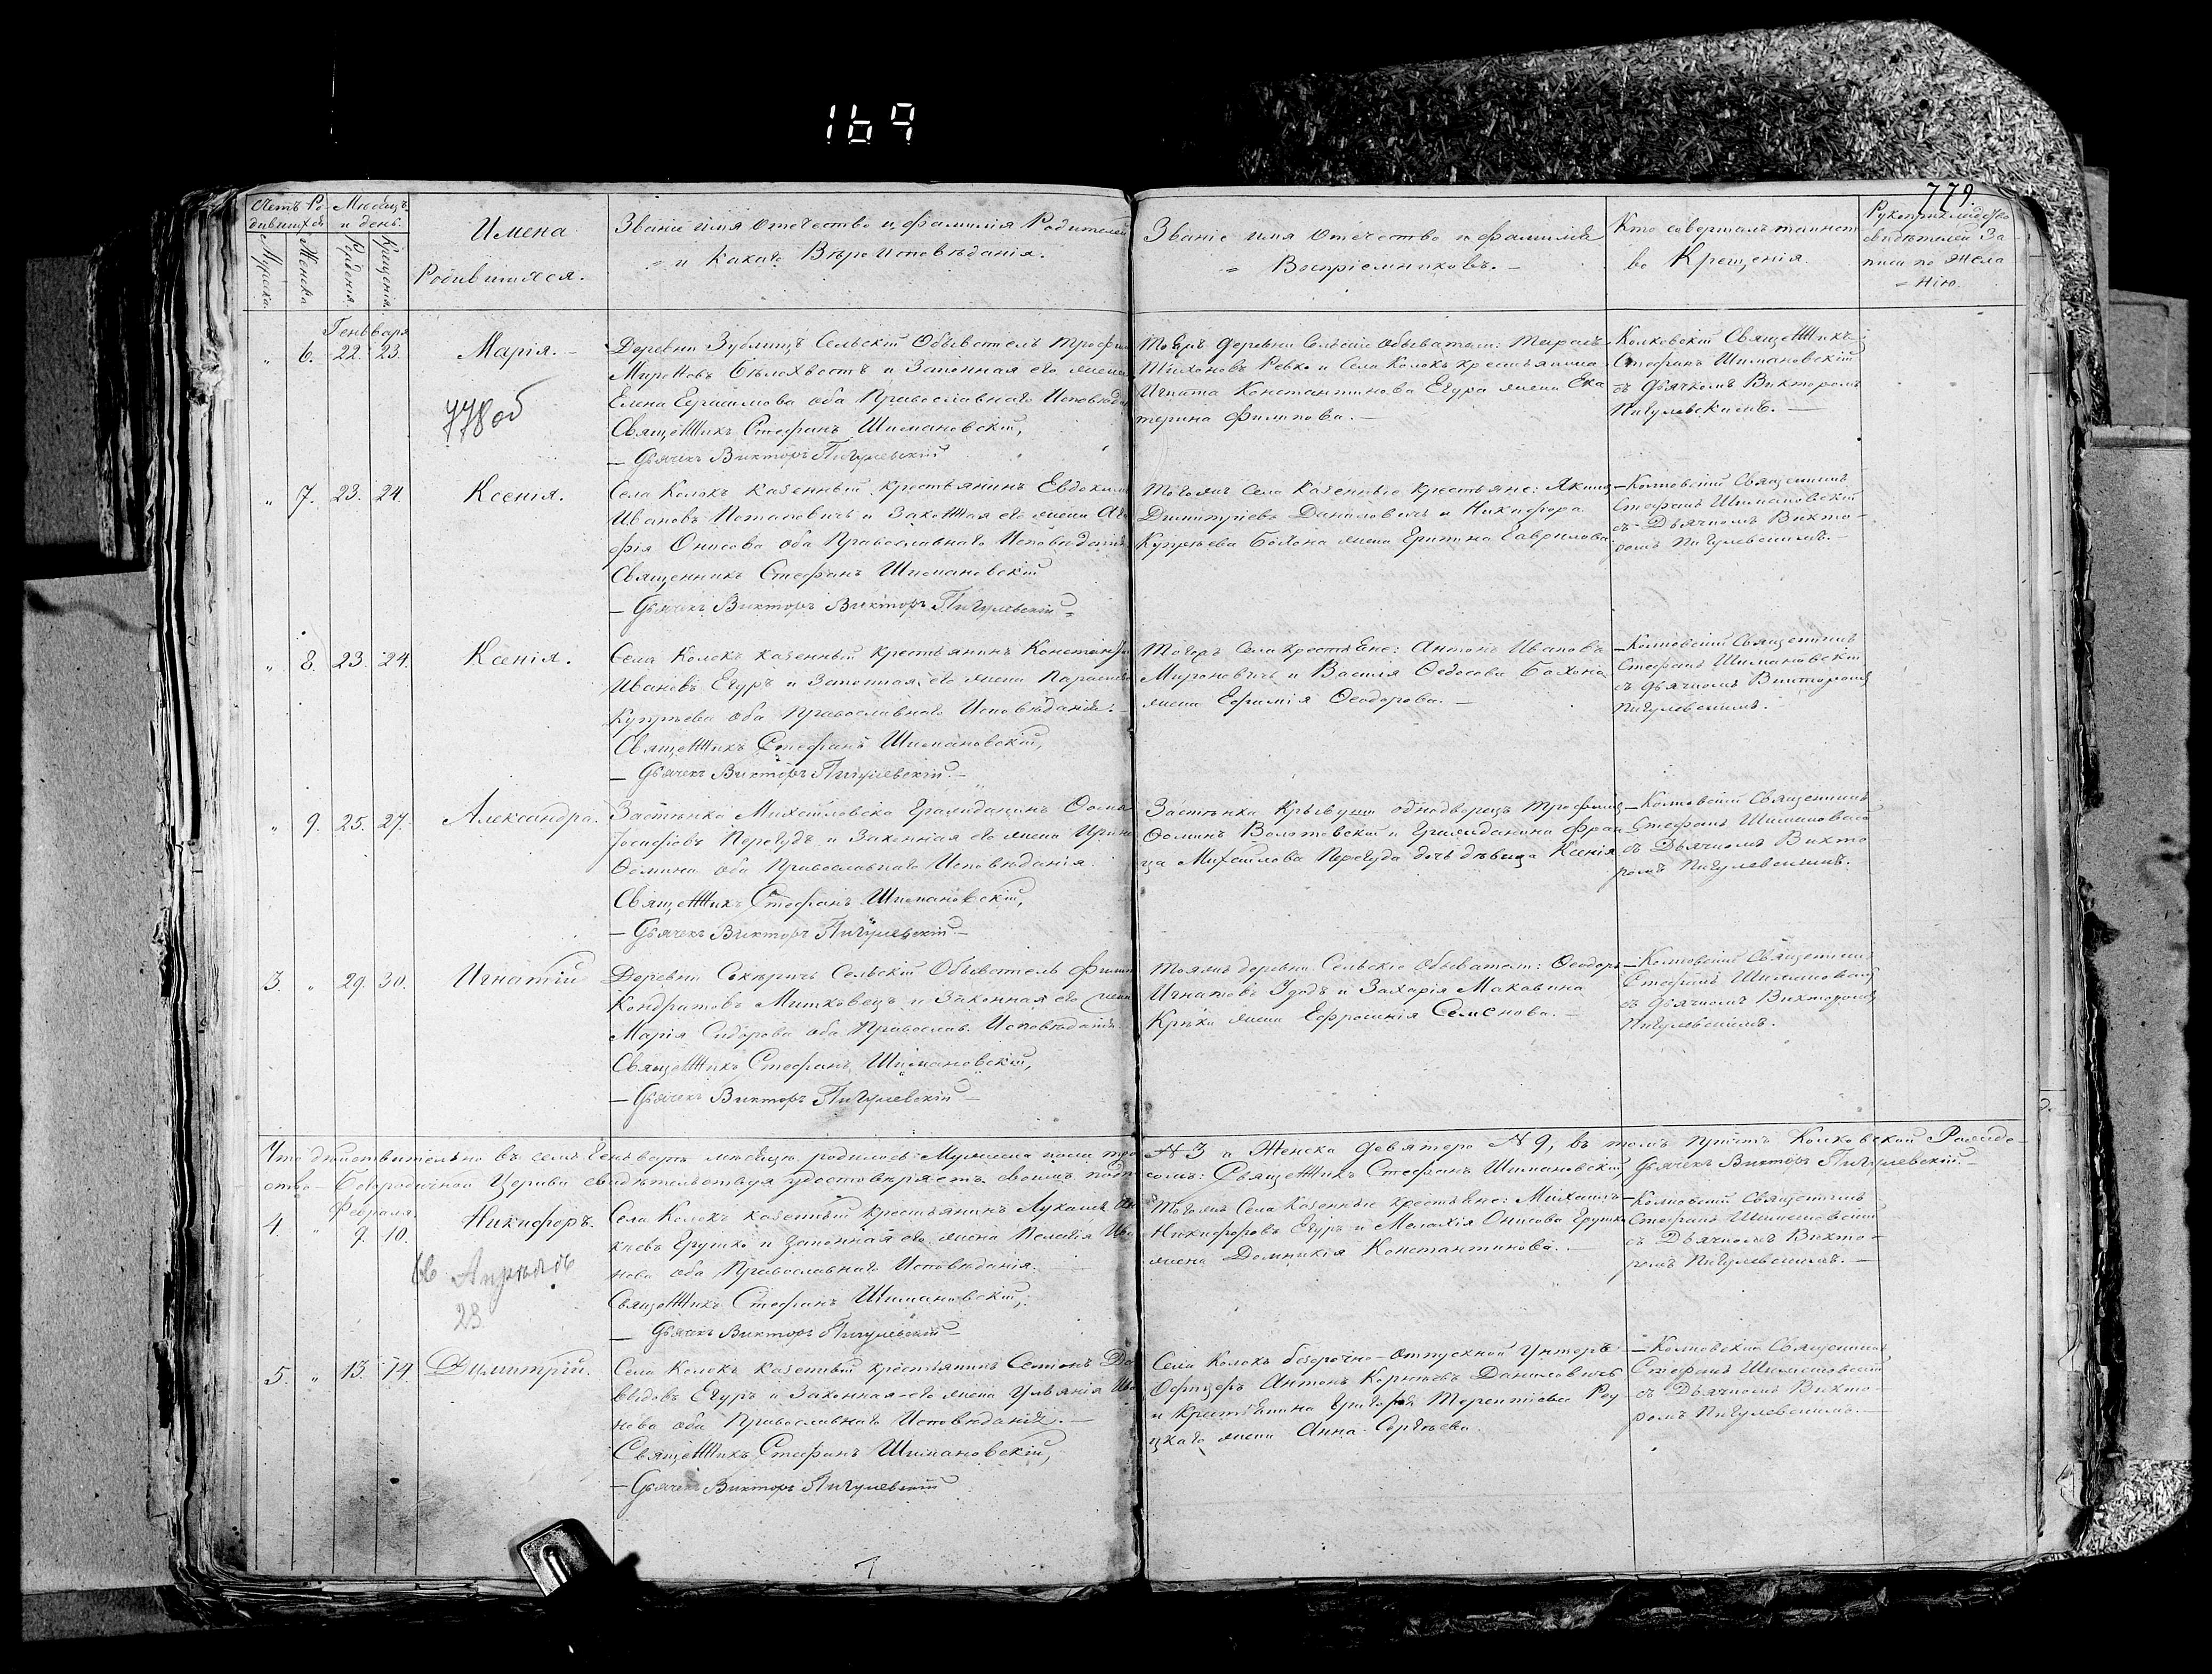 169
779.
Счетъ Ро-
дившихся
Мѣсяцъ
и день.
Мужска.
Женска
Рожденія.
Крещенія.
Имена
Родившихся.
Званіе имя отечество и фамилія Родителей
и Какаго Вѣроисповѣданія.
Званіе имя отечество и фамилія
Воспріемниковъ.
Кто совершалъ таинст
во Крещенія.
Рукоприкладство
свидѣтелей за
писи по жела
нію.
Генваря
" 6. 22. 23. Марія.
778 об
Деревни Сельскій Обыватель Трофим
Мироновъ Бѣлохвостъ и Законная его жена
Елена Герасимова оба Православнаго Исповѣда
Священникъ Стефанъ Шимановскій,
Дьячекъ Викторъ Пигулевскій
Тоежъ деревни Сельскіе обыватели: Тарасъ
Тихоновъ Ревко и Села Колокъ крестьянина
Игната Константинова Егура жена Ека
терина Филипова.
Колковскій Священникъ
Стефанъ Шимановскій
съ дьячкомъ Викторомъ
Пигулевскимъ.
" 7. 23. 24. Ксенія.
Села Колокъ казенный крестьянинъ Евдокимъ
Ивановъ Потаповичъ и Законная его жена Ага
фія Онисова оба Православнаго Исповѣданія
Священникъ Стефанъ Шимановскій
Дьячекъ Викторъ Викторъ Пигулевскій
Тогожъ Села Казенные крестьяне: Яким
Димитріевъ Даниловичъ и Никифора
Жена Гаврилова.
Колковскій Священникъ
Стефанъ Шимановскій
съ Дьячкомъ Викто-
ромъ Пигулевскимъ.
" 8. 23. 24. Ксенія.
Села Колокъ казенный крестьянинъ Константи
Ивановъ Егуръ и Законная его жена Параскева
оба Православнаго Исповѣданія.
Священникъ Стефанъ Шимановскій,
Дьячекъ Викторъ Пигулевскій
Тогожъ Села крестьяне: Антонъ Ивановъ
Мироновичъ и Василя Федосова
жена Ефимія Феодорова.
Колковскій Священникъ
Стефанъ Шимановскій
съ дьячкомъ Викторомъ
Пигулевскимъ.
" 9. 25. 27. Александра.
Застѣнка Михайловска Гражданинъ Фома
Іосифовъ Перегудъ и Законная его жена Ирина
Фомина оба Православнаго Исповѣданія
Священникъ Стефанъ Шимановскій,
Дьячекъ Викторъ Пигулевскій
Застѣнка однодворецъ Трофимъ
Фоминъ и Гражданина Фран
ца Михайлова Перегуда дочь дѣвица Ксенія
Колковскій Священникъ
Стефанъ Шимановскій
съ Дьячкомъ Викто
ромъ Пигулевскимъ.
3. " 29. 30. Игнатій
Деревни Сельскій Обыватель Филип
Кондратовъ Митковецъ и Законная его жена
Марія Сидорова оба Православ. Исповѣданія
Священникъ Стефанъ Шимановскій,
Дьячекъ Викторъ Пигулевскій
Тояжъ деревни Сельскіе Обыватели: Феодоръ
Игнатовъ Удодъ и Захарія
жена Ефросинія Семенова.
Колковскій Священникъ
Стефанъ Шимановскій
съ дьячкомъ Викторомъ
Пигулевскимъ.
Что дѣйствительно въ семъ Генварѣ мѣсяцѣ родилось Мужеска пола три № 3 и Женска девятеро № 9, въ томъ Причтъ Колковской Рождество
Богородичной Церкви свидѣтельствуя удостовѣряетъ своимъ подписомъ: Священникъ Стефанъ Шимановскій, Дьячекъ Викторъ Пигулевскій.
Февраля.
4. " 9. 10. Никифоръ.
66 Апрѣль
23
Села Колокъ казенный крестьянинъ
и Законная его жена Пелагія Ива
нова оба Православнаго Исповѣданія.
Священникъ Стефанъ Шимановскій,
Дьячекъ Викторъ Пигулевскій
Тогожъ Села Казенные крестьяне: Михаилъ
Никифоровъ Егуръ и Малахія Онисова
жена Домникія Константинова.
Колковскій Священникъ
Стефанъ Шимановскій
съ Дьячкомъ Викто-
ромъ Пигулевскимъ.
5. " 13. 14. Димитрій.
Села Колокъ казенный крестьянинъ Семіонъ Да
выдовъ Егуръ и Законная его жена Ульянія Ива
нова оба Православнаго Исповѣданія.
Священникъ Стефанъ Шимановскій,
Дьячекъ Викторъ Пигулевскій
Села Колокъ безсрочно-отпускной Унтеръ
Офицеръ Антонъ Корнѣевъ Даниловичъ
и Крестьянина Григорія Терентіева Роу
цкаго жена Анна Сергѣева
Колковскій Священникъ
Стефанъ Шимановскій
съ Дьячкомъ Викто-
ромъ Пигулевскимъ.